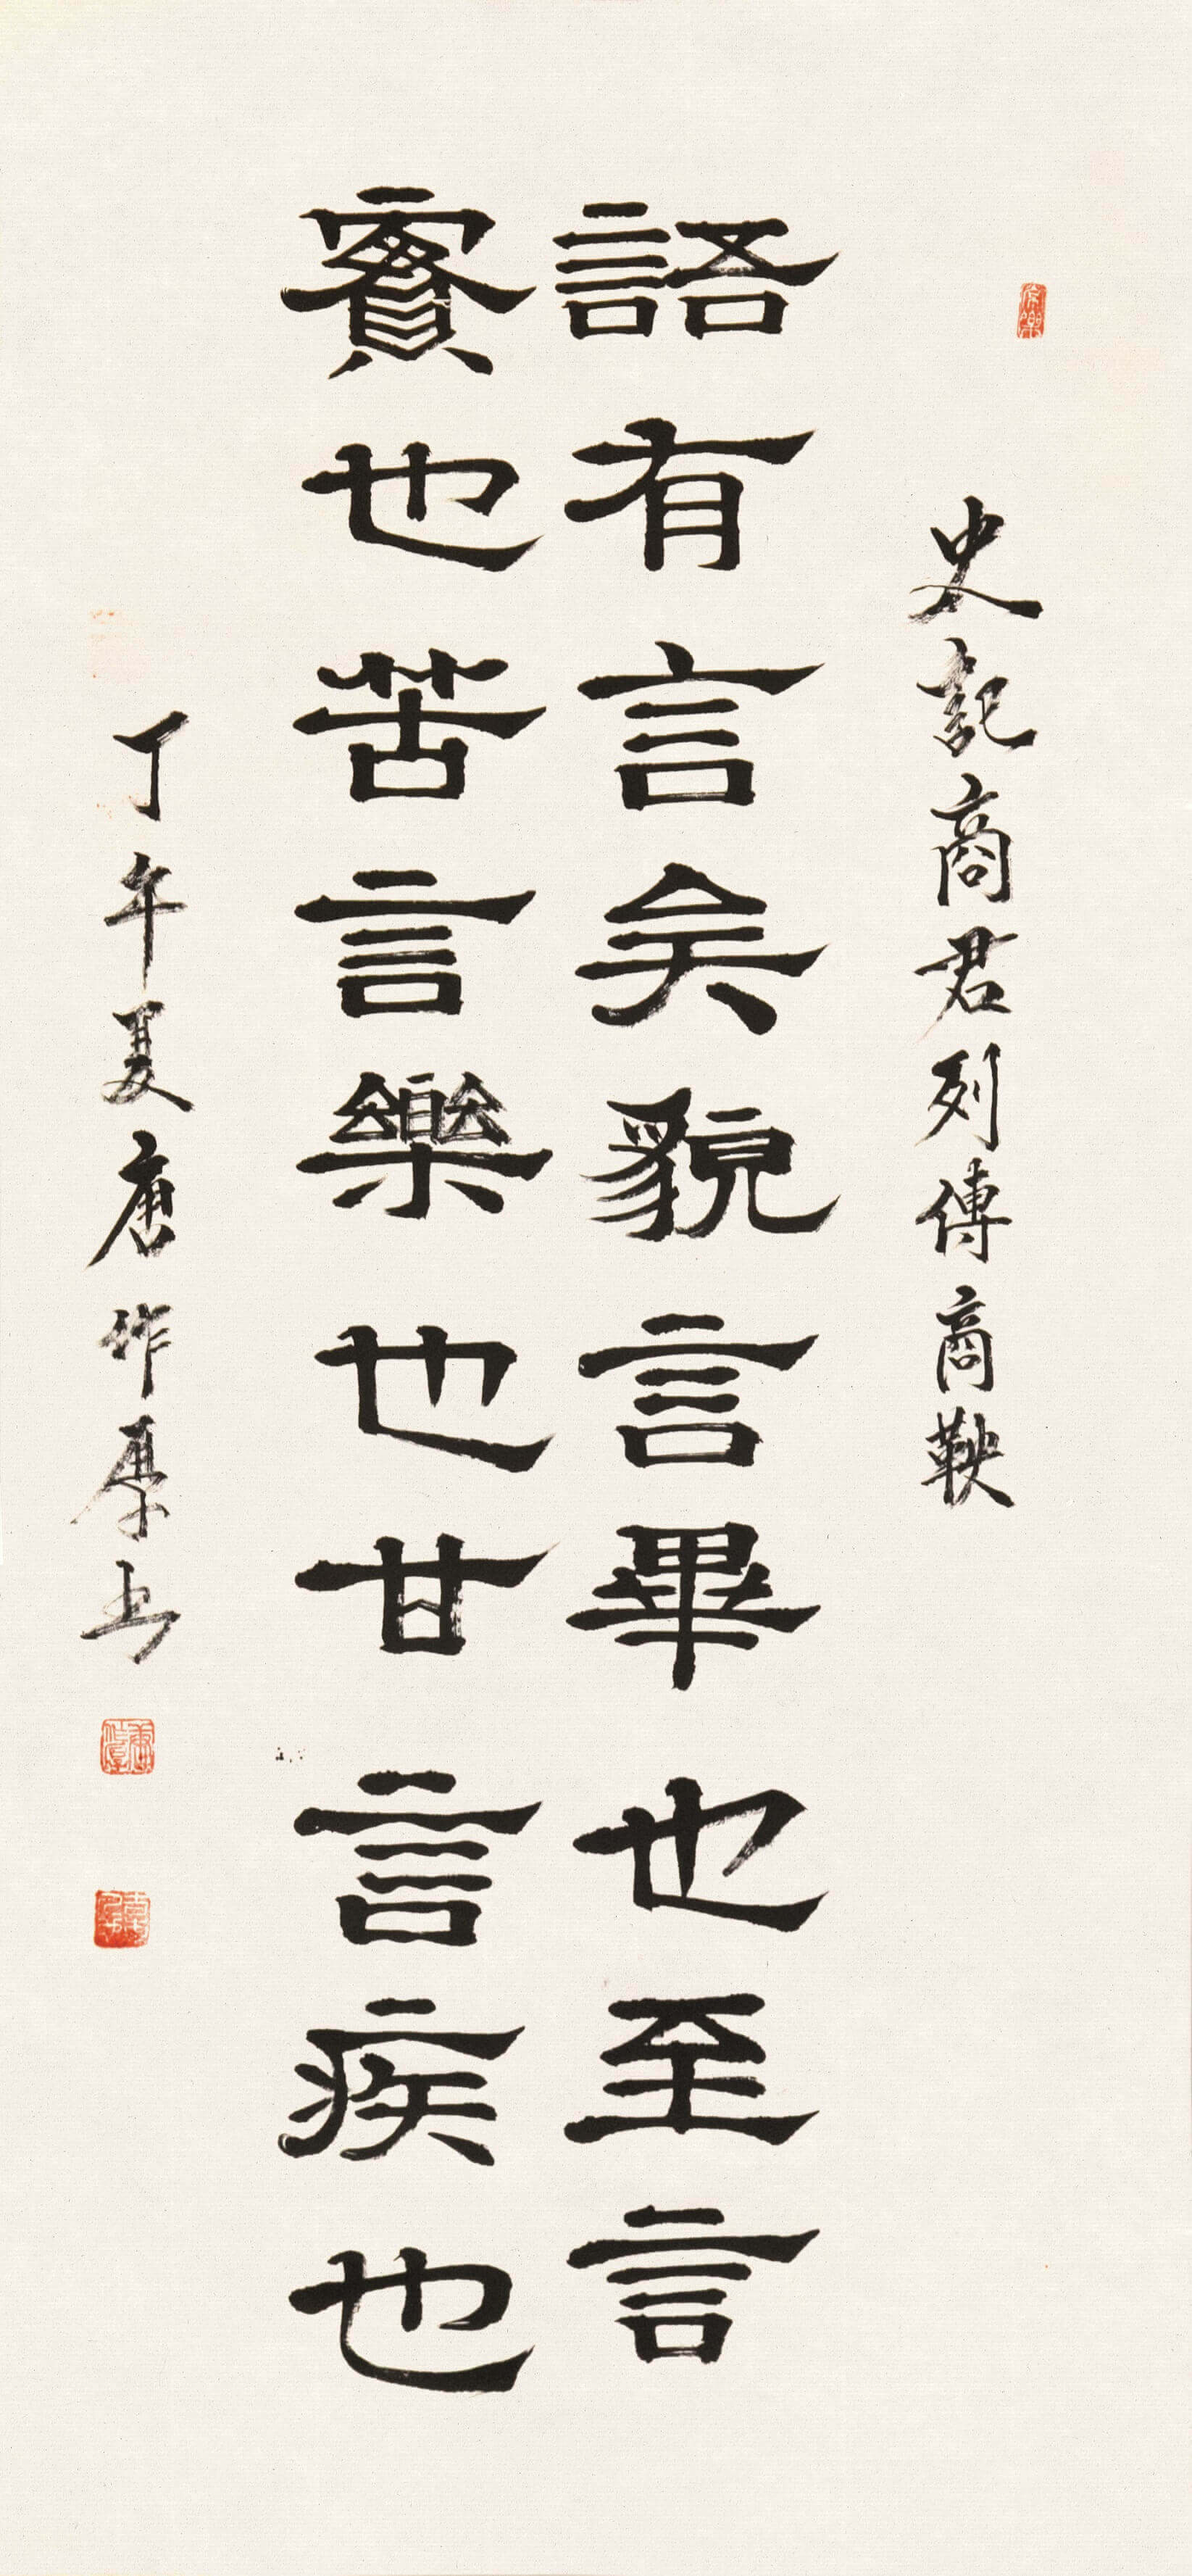 史記商君列傳商鞅
語有言矣貌言畢也至言
實也苦言樂也甘言疾也
丁午夏唐作厚书